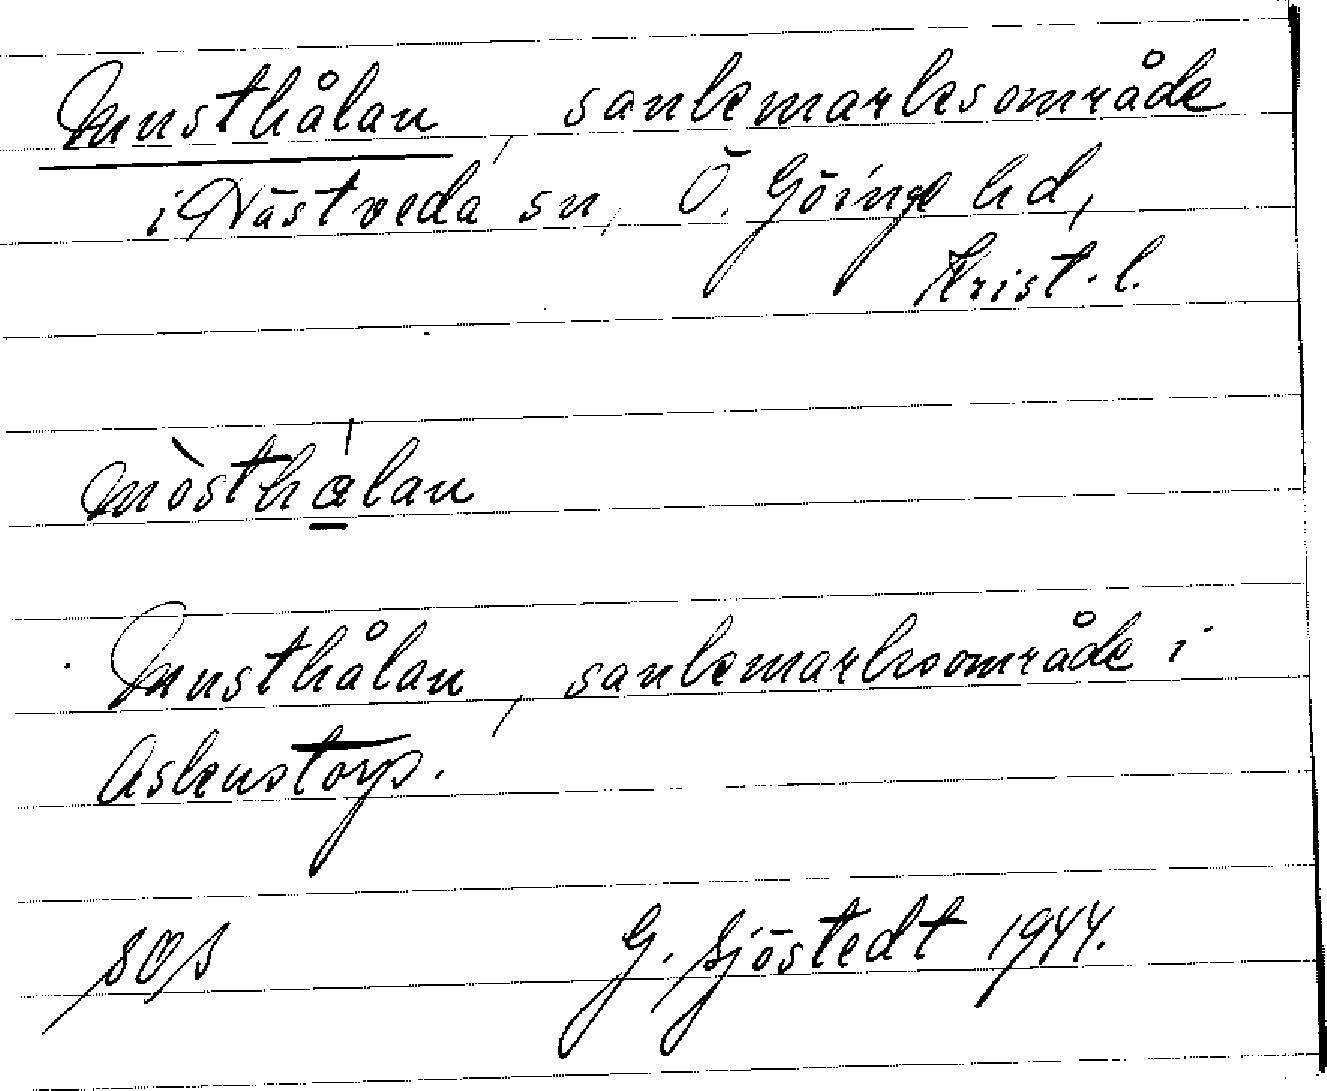 Musthålan, sankmarksområde
i Västveda sn, Ö. Göinge hd,
Krist. l.
mòsthα̲lan
Musthålan, sankmarksområde i
Askenstorp.
G. Sjöstedt 1944.